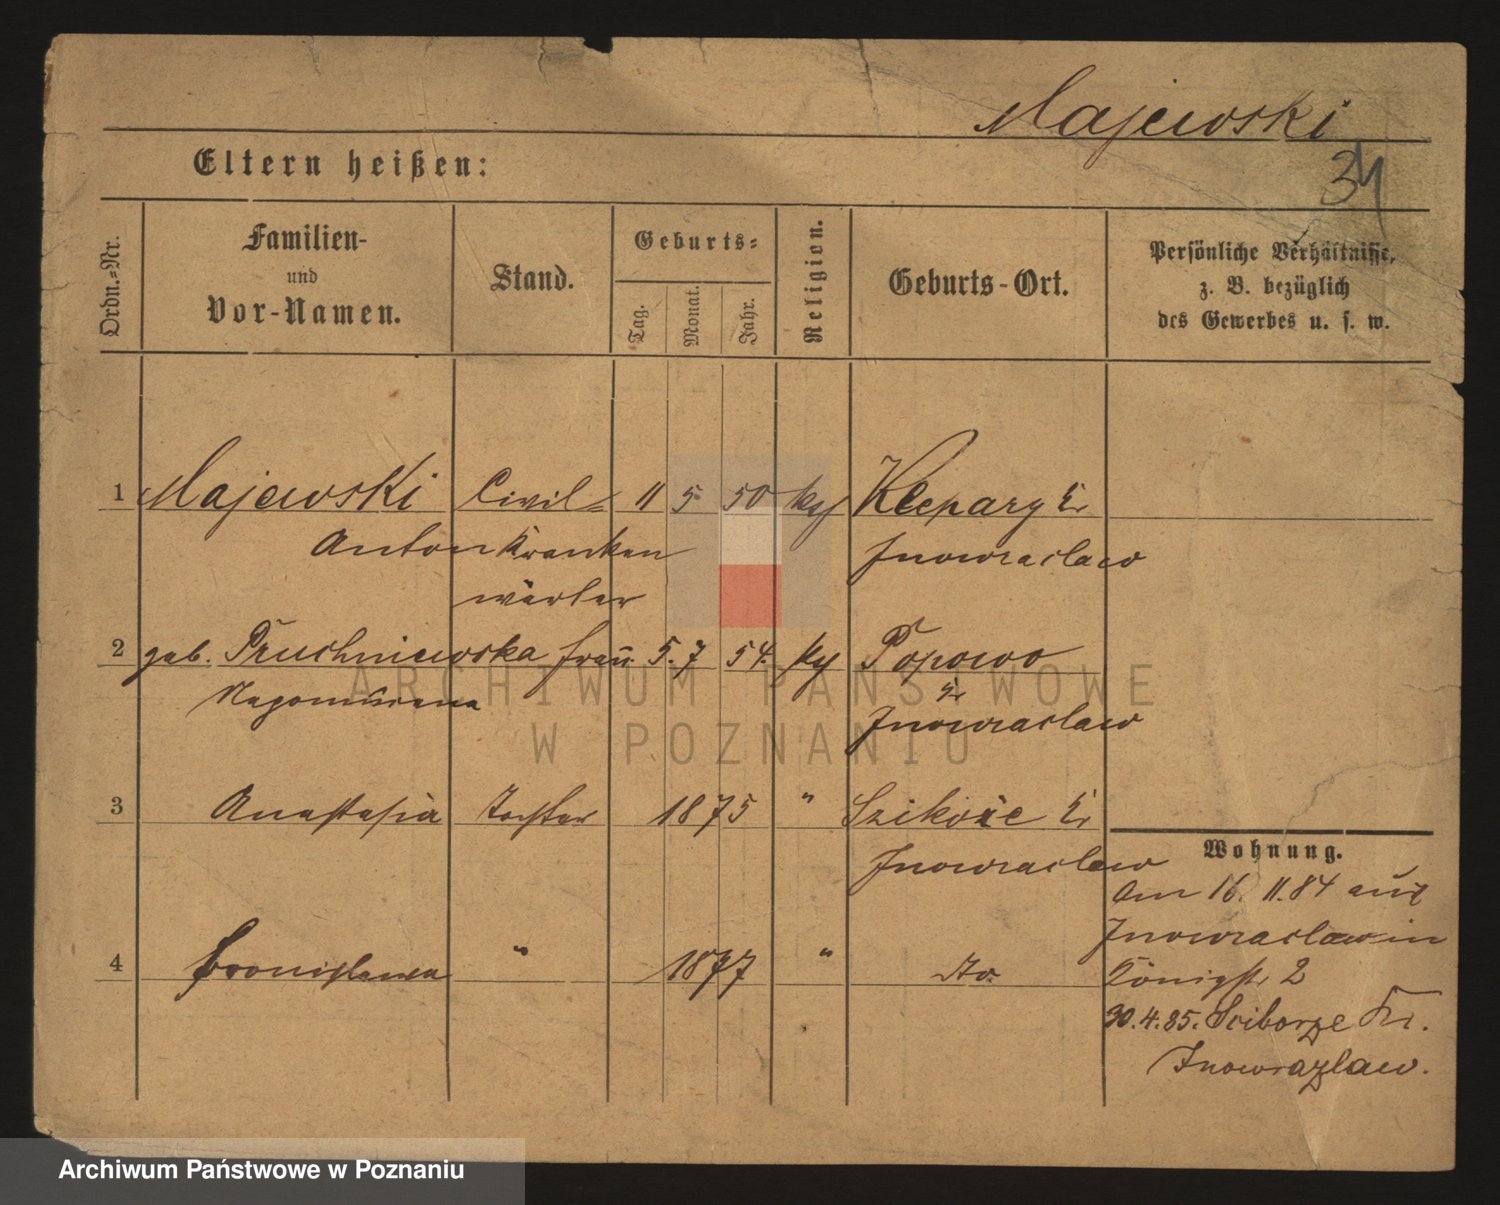 Majewski
34
Eltern heißen:
Ordn.-Nr.
Familien-
und
Vor-Namen.
Stand.
Geburts-
Tag.
Monat.
Jahr.
Religion.
Geburts-Ort.
Persönliche Verhältnisse,
z. B. bezüglich
des Gewerbes u. s. w.
1 Majewski Civil- 11 5 50 Klepary Kr
Anton kranken Inowraclaw
wärter
2 geb. Pruchniewska frau 5. 7 54. Popowo
Nepomucena Kr
Inowraclaw
3 Anastasia Tochter 1875 " Kr
Inowraclaw
4 Bronislawa " 1877 " do.
Wohnung.
Am 16. 11. 84 aus
Inowraclaw in
Königstr 2
30. 4. 85. Sciborze Kr.
Inowrazlaw.
ARCHIWUM PAŃSTWOWE
W POZNANIU
Archiwum Państwowe w Poznaniu